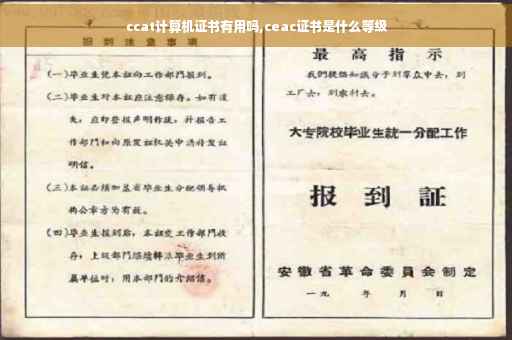 ccat计算机证书有用吗,ceac证书是什么等级
报到注意事项
(一)毕业生凭本证向工作部门报到。
(二)毕业生对本证应注意保存。如有遗
失,应即登报声明作废,并报告工
作部门和向原发证机关申请补发证
明信。
(三)本证必须加盖省毕业生分配领导机
构公章方为有效。
(四)毕业生报到后,本证交工作部门收
存;上级部门继续转派毕业生到所
属单位时,用本部门的介绍信。
最高指示
我们提倡知识分子到群众中去,到
工厂去,到农村去。
大专院校毕业生统一分配工作
报到証
安徽省革命委員会制定
一九 年 月 日